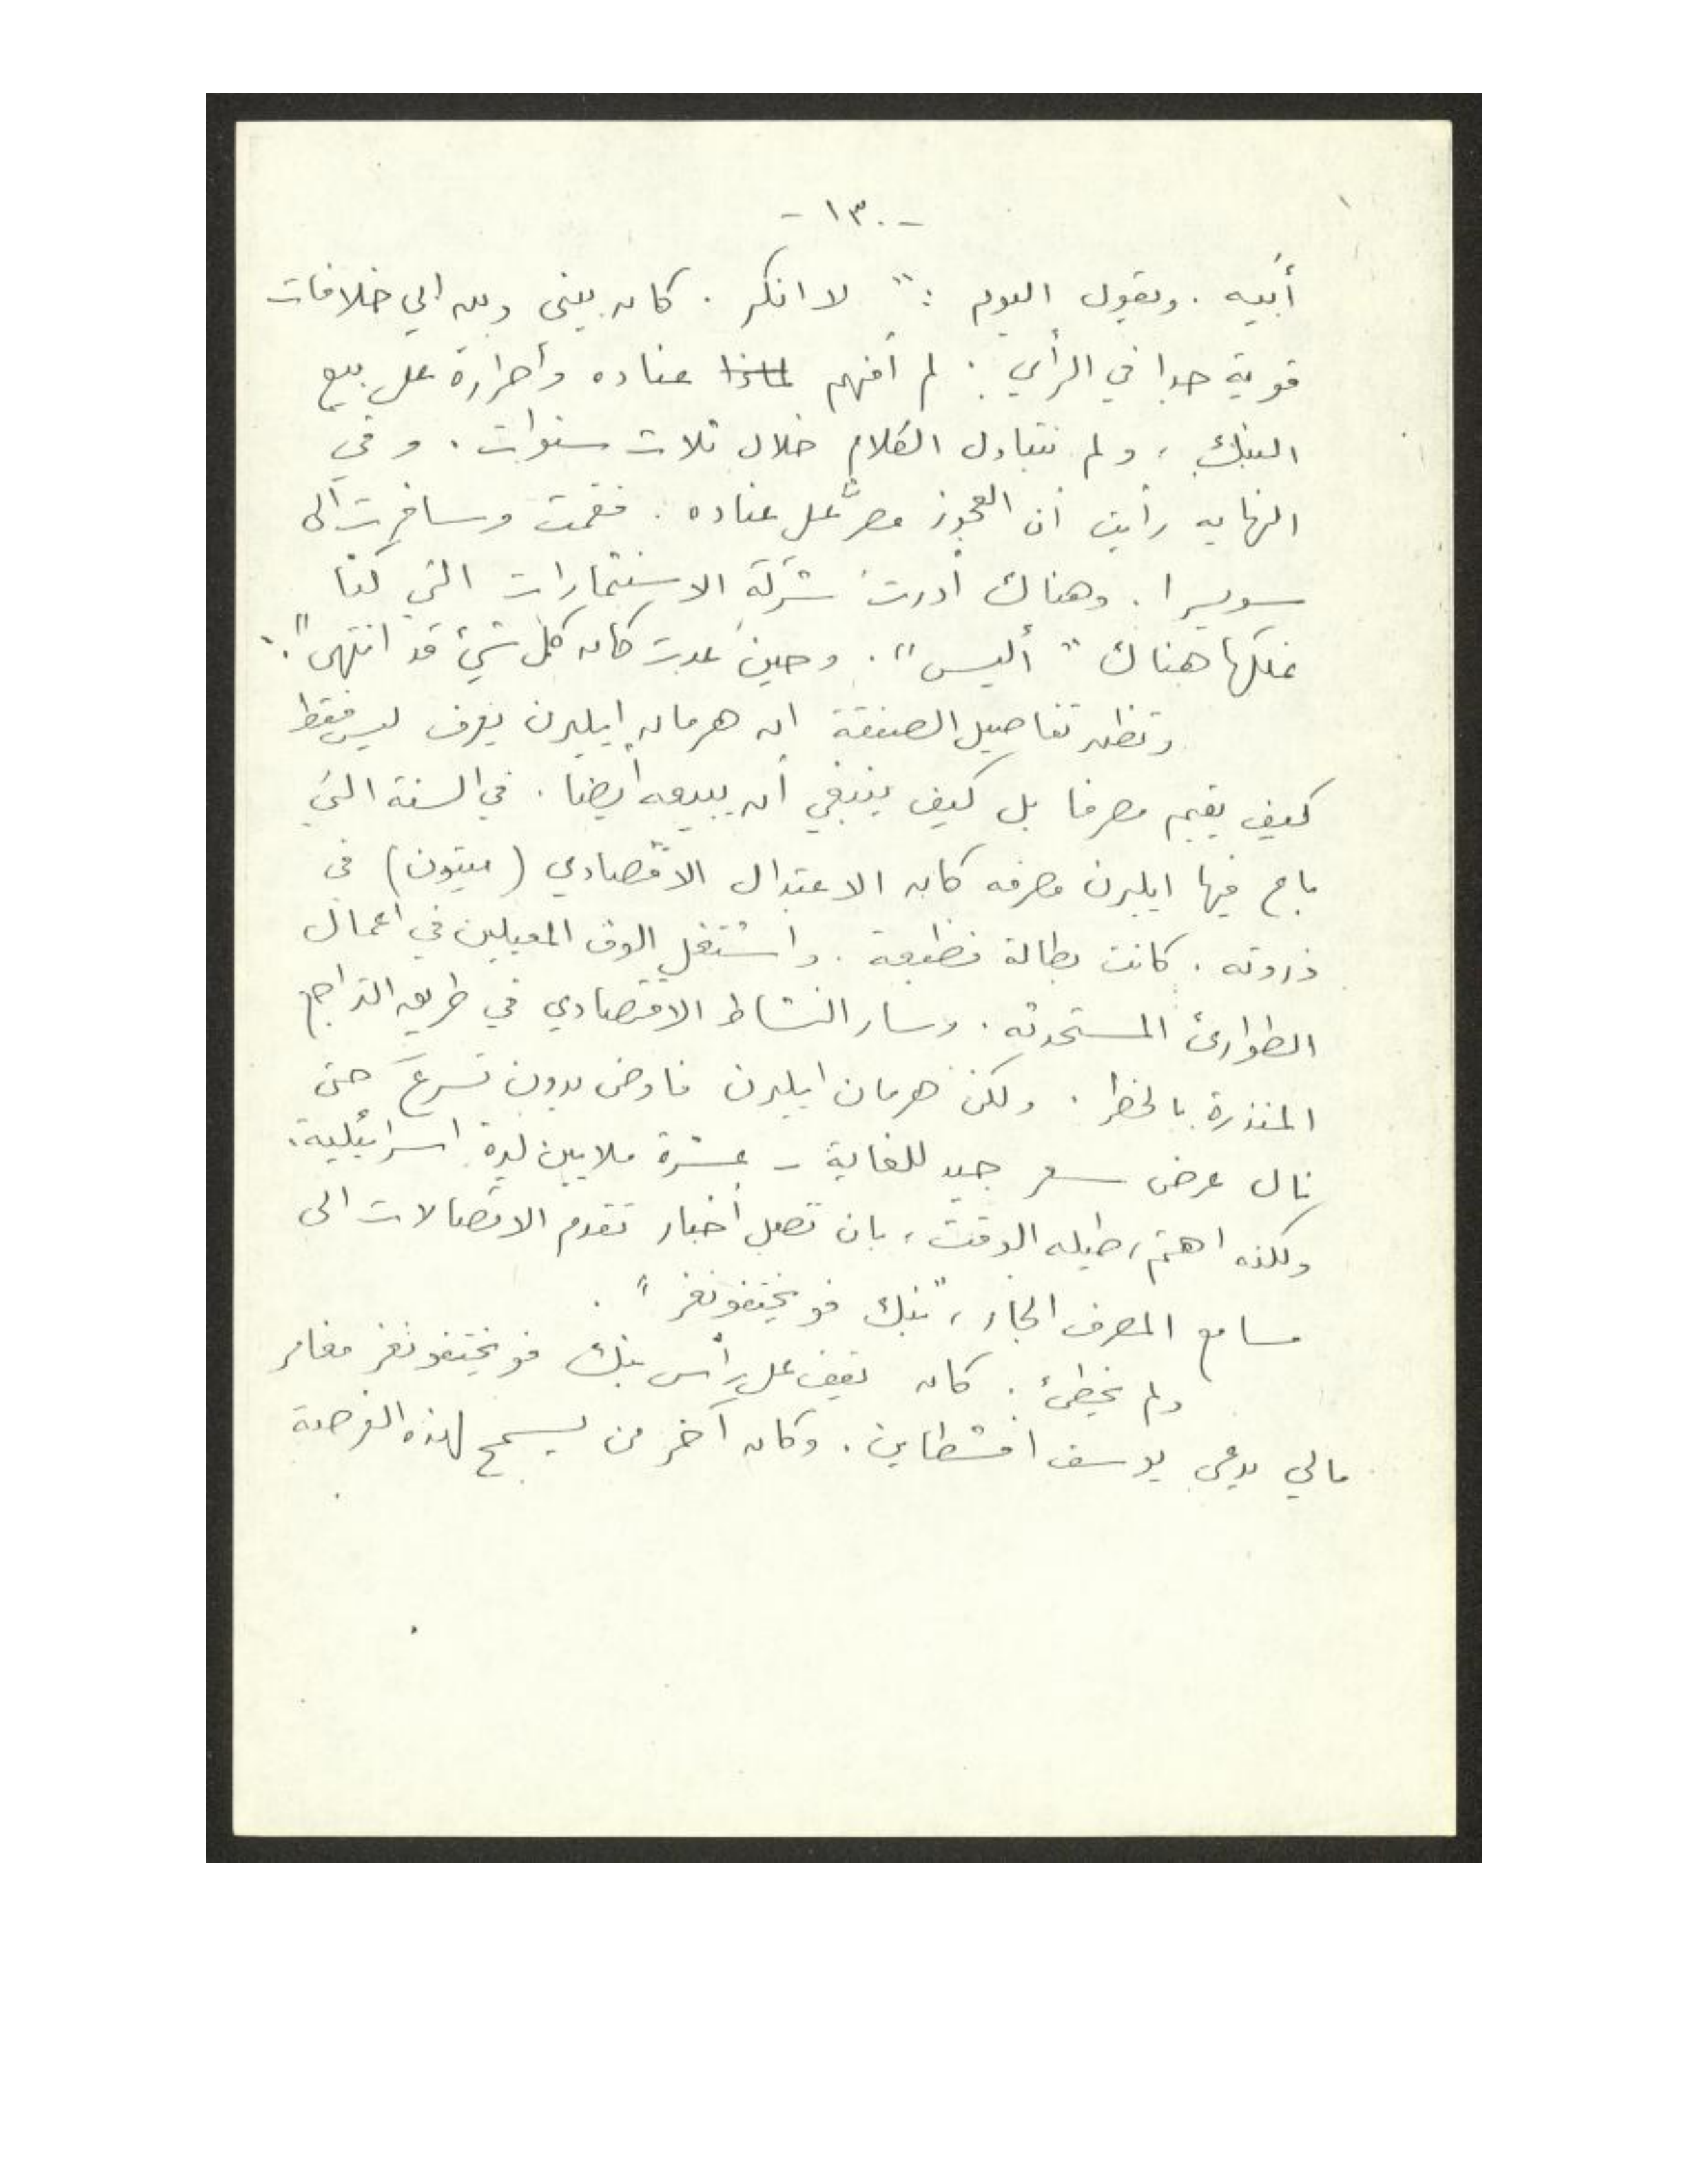 - ١٣٠ -
أبيه . ويقول اليوم : " لا انكر . كان بيني وبين ابي خلافات
قوية جدا في الرأي . لم أفهم لماذا عناده وأصراره على بيع
البنك ، ولم نتبادل الكلام خلال ثلاث سنوات . وفي
النهايه رأيت أن العجوز مصرّ على عناده . فقمت وسافرت الى
سويسرا . وهناك أدرت شركة الاستثمارات التي كنّا
نملكها هناك " أليس " . وحين عدت كان كل شيئ قد انتهى " .
وتظهر تفاصيل الصفقة ان هرمان ايليرن يعرف ليس فقط
كيف يقيم مصرفا بل كيف ينبغي أن يبيعه أيضا . في السنة التي
باع فيها ايليرن مصرفه كان الاعتدال الاقتصادي ( ميتون ) في
ذروته . كانت بطالة فظيعة . واشتغل الوف المعيلين في اعمال
الطوارئ المستحدثه . وسار النشاط الاقتصادي في طريق التراجع
المنذرة بالخطر . ولكن هرمان ايليرن فاوض بدون تسرع حتى
نال عرض سعر جيد للغاية - عشرة ملايين ليرة اسرائيلية .
ولكنه اهتم ، طيله الوقت ، بان تصل أخبار تقدم الاتصالات الى
مسامع المصرف الجار ، " بنك فويختفونغر " .
ولم يخطئ . كان يقف على رأس بنك فويختفونغر مغامر
مالي يدعى يوسف افشطاين . وكان آخر من يسمح لهذه الفرصة